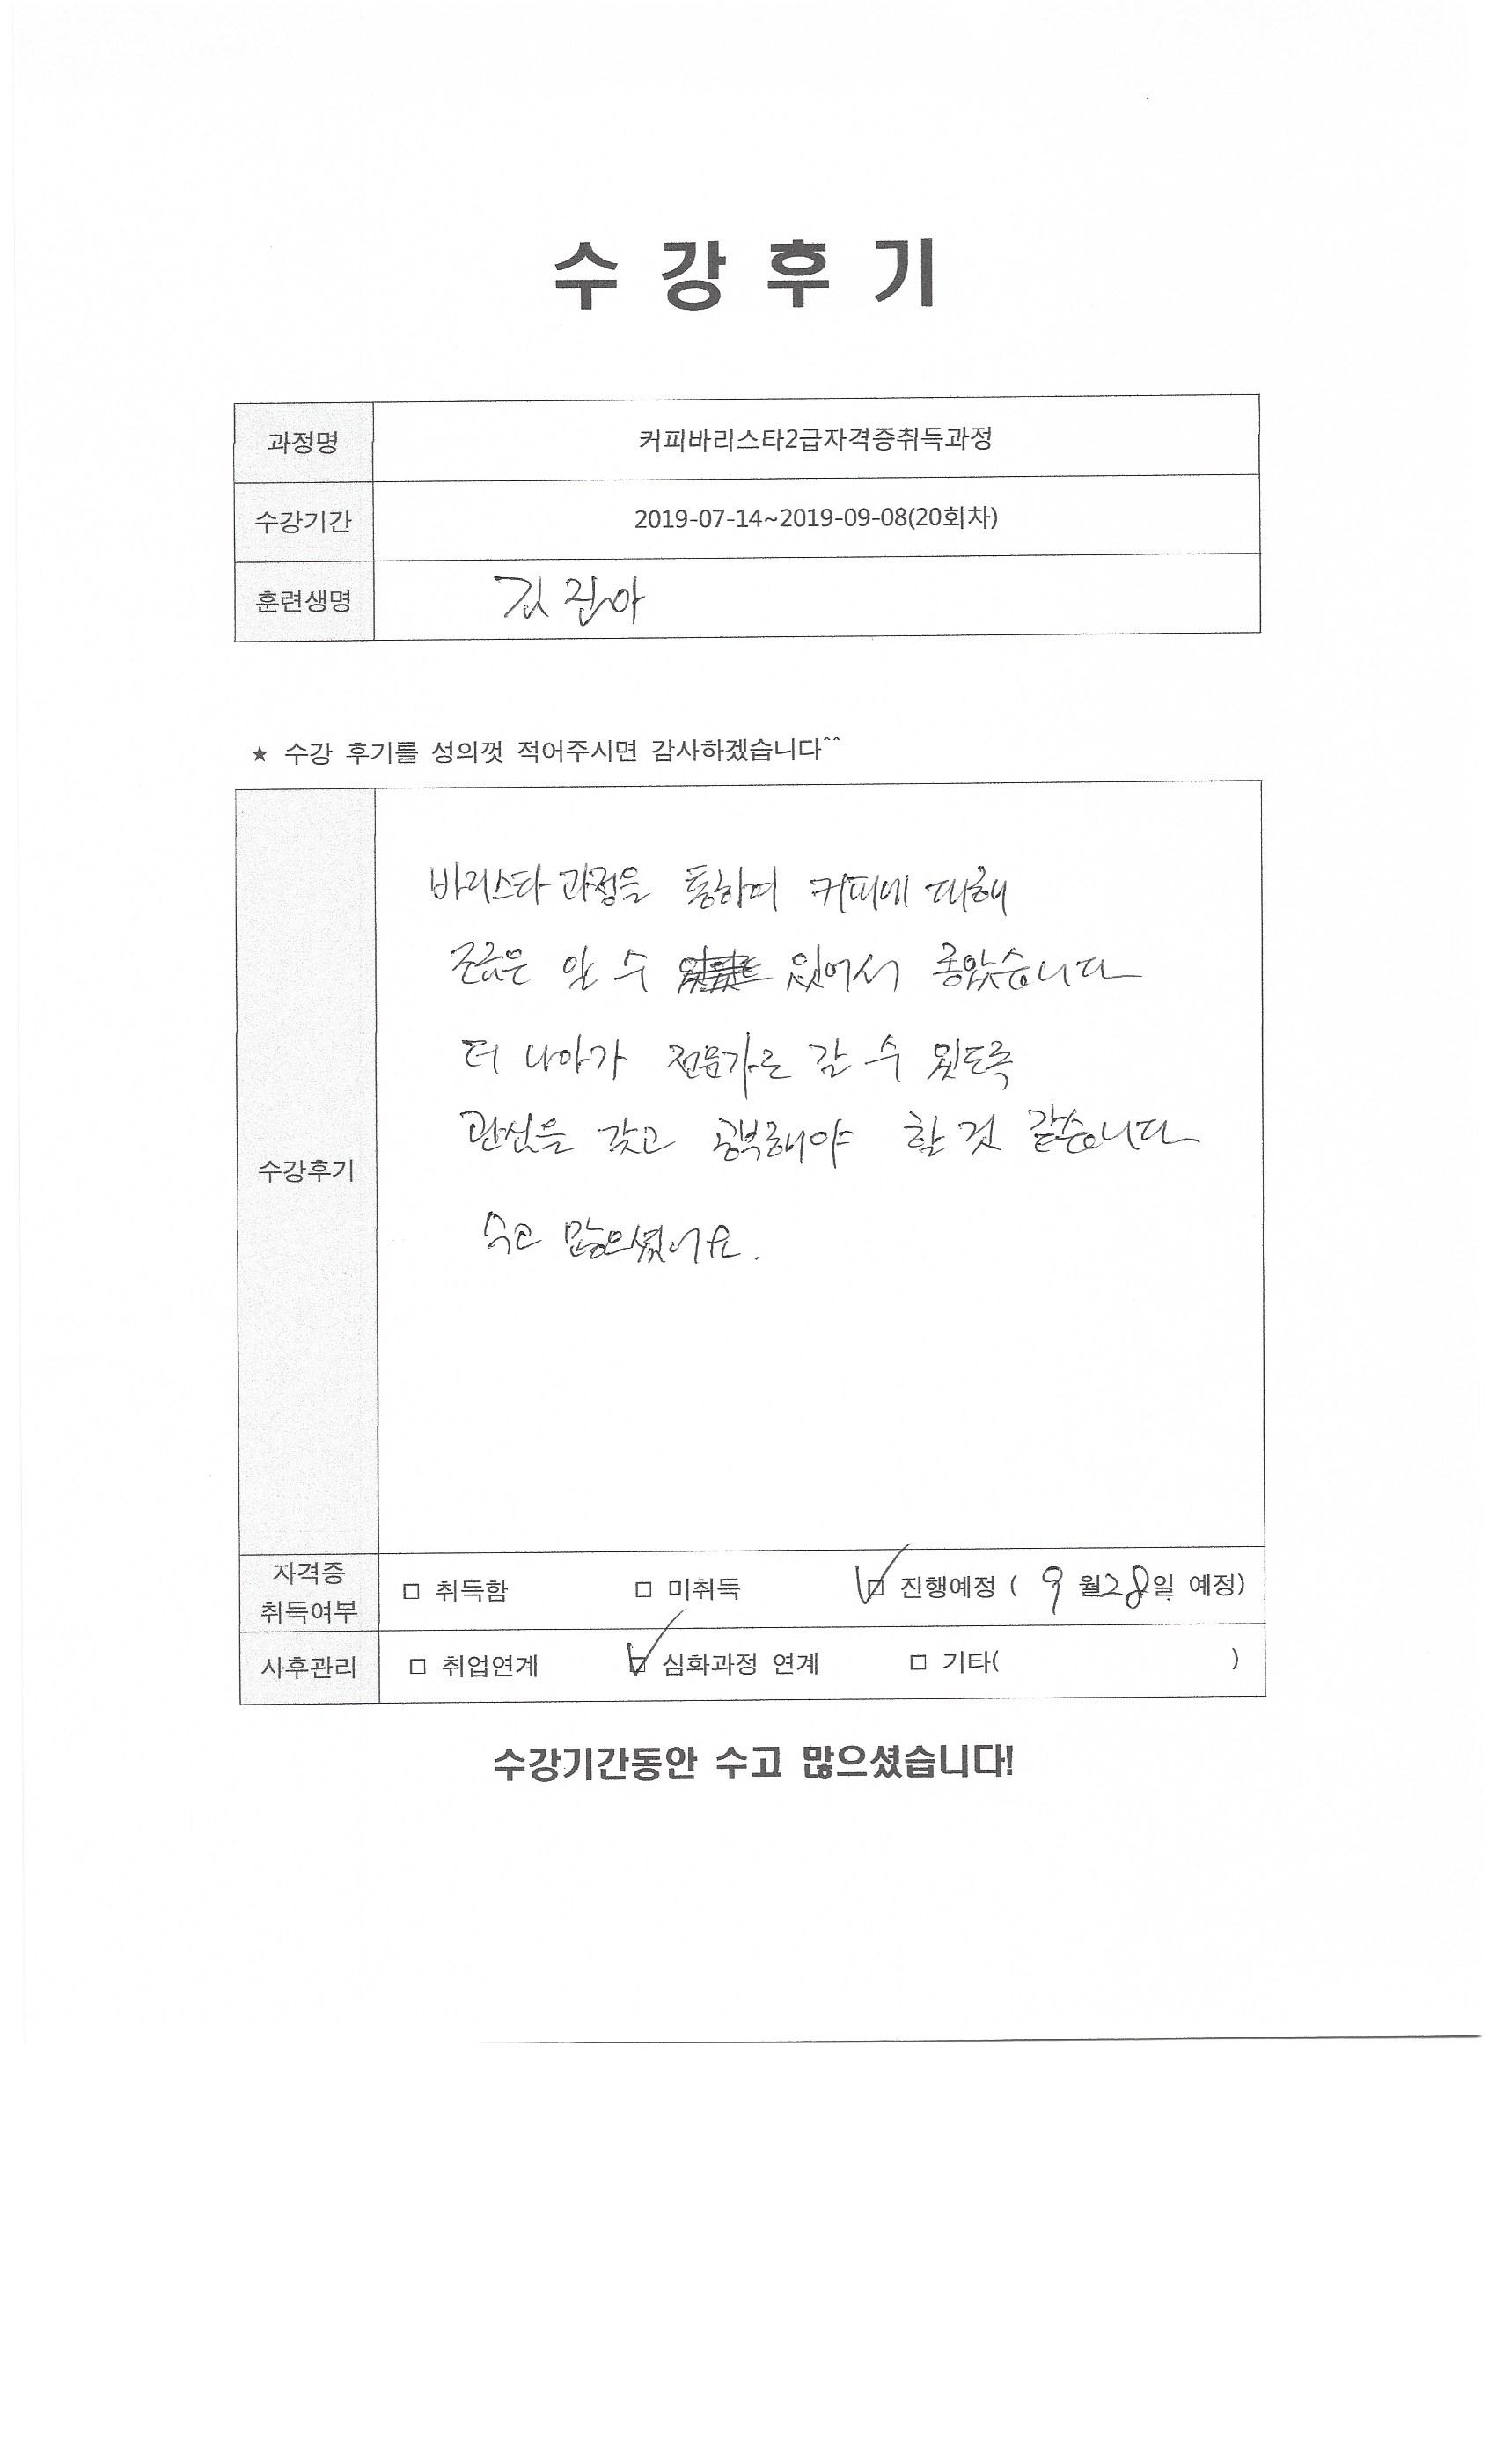 수 강 후 기
과정명 커피바리스타2급자격증취득과정
수강기간 2019-07-14~2019-09-08(20회차)
훈련생명 김진아
★ 수강 후기를 성의껏 적어주시면 감사하겠습니다^^
바리스타 과정을 통하여 커피에 대해
조금은 알 수 있어서 좋았습니다
더 나아가 전문가로 갈 수 있도록
관심을 갖고 공부해야 할 것 같습니다
수고 많으셨어요.
수강후기
자격증
취득여부
□ 취득함 □ 미취득 ☑ 진행예정 ( 9 월 28일 예정)
사후관리 □ 취업연계 ☑ 심화과정 연계 □ 기타( )
수강기간동안 수고 많으셨습니다!